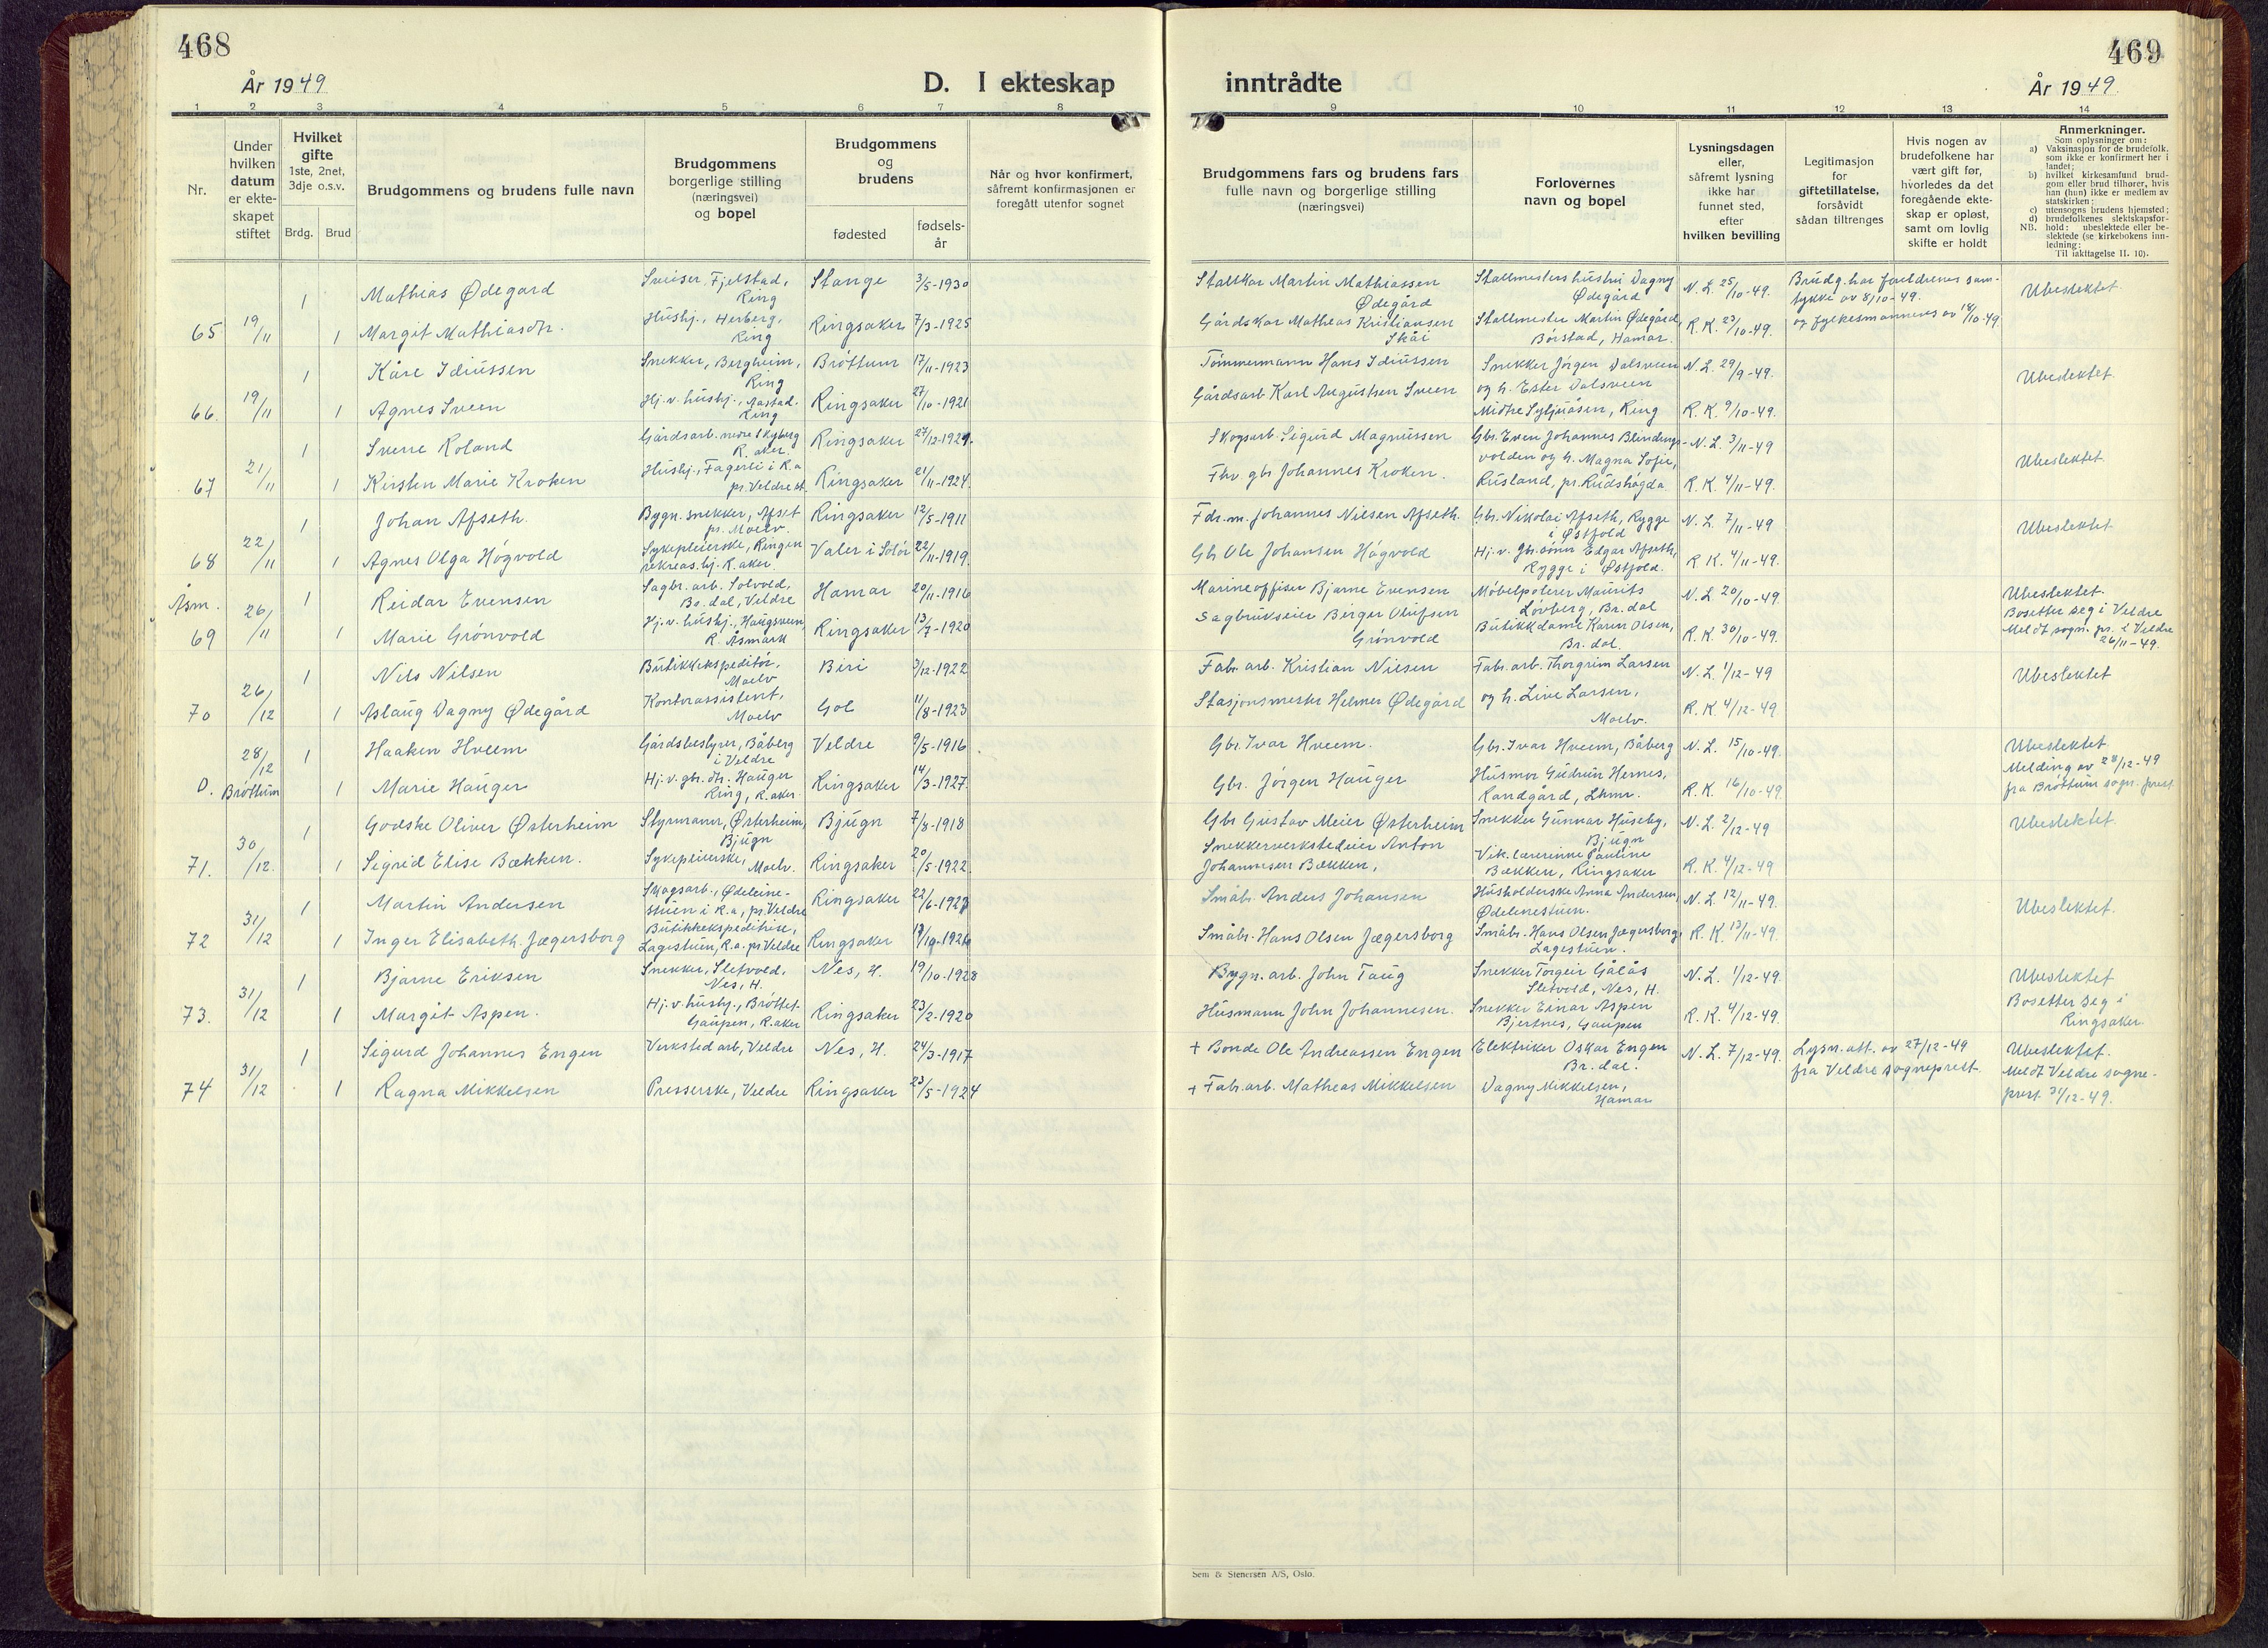 468
År 1949
D. I ekteskap
inntrådte
469
År 1949.
1 2 3 4 5 6 7 8
9 10 11 12 13 14
Nr.
Under hvilken datum er ekteskapet stiftet
Hvilket gifte 1ste, 2net, 3dje o.s.v.
Brdg. Brud
Brudgommens og brudens fulle navn
Brudgommens borgerlige stilling (næringsvei) og bopel
Brudgommens og brudens
fødested
fødsels-år
Når og hvor konfirmert, såfremt konfirmasjonen er foregått utenfor sognet
Brudgommens fars og brudens fars fulle navn og borgerlige stilling (næringsvei)
Forlovernes navn og bopel
Lysningsdagen eller, såfremt lysning ikke har funnet sted, efter hvilken bevilling
Legitimasjon for giftetillatelse, forsåvidt sådan tiltrenges
Hvis nogen av brudefolkene har vært gift før, hvorledes da det foregående ekteskap er opløst, samt om lovlig skifte er holdt
Anmerkninger.
Som oplysninger om:
a) Vaksinasjon for de brudefolk, som ikke er konfirmert her i landet;
b) hvilket kirkesamfund brudgom eller brud tilhører, hvis han (hun) ikke er medlem av statskirken;
c) utensogns brudens hjemsted;
d) brudefolkenes slektskapsforhold: ubeslektede eller beslektede (se kirkebokens innledning:
NB.
Til iakttagelse II. 10).
1 Mathias Ødegard Sveiser, Fjelstad, Ring Stange 3/5-1930 Stallkar Martin Mathiassen Ødegård Stallmesters hustru Dagny Ødegård N. L. 25/10-49. Brudg. har foreldrenes samtykke av 8/10-49. Ubeslektet
65 19/11 1 Margit Mathiasdtr. Hushj., Herberg, Ring Ringsaker 7/3-1925 Gårdskar Matheas Kristiansen Skåi Stallmester Martin Ødegård, Børstad, Hamar. R. K. 23/10-49. og fylkesmannens av 18/10-49
1 Kåre Idiussen Snekker, Bergheim, Ring Brøttum 17/11-1923 Tømmermann Hans Idiussen Snekker Jørgen Dalsveen N. L. 29/9-49. Ubeslektet
66. 19/11 1 Agnes Sveen Hj. v. hushj., Aastad. Ring Ringsaker 27/10-1921 Gårdsarb Karl Augustsen Sveen og h. Ester Dalsveen Midtre Syljuåsen, Ring R. K. 9/10-49.
1 Sverre Roland Gårdsarb. nedre Skyberg R. aker. Ringsaker 27/12-1929. Skogsarb. Sigurd Magnussen Gbr. Even Johannes Blindings- N. L. 3/11-49 Ubeslektet
67 21/11 1 Kirsten Marie Kroken Hushj., Fagerli i R.a pr. Veldre st. Ringsaker 21/11-1924. Fhv gbr Johannes Kroken. volden og h. Magna Sofie, Rusland, pr. Rudshøgda R. K. 4/11-49.
1 Johan Afseth. Bygn. snekker, Afset pr. Moelv. Ringsaker 12/5-1911 Fdr. m. Johannes Nilsen Afseth. Gbr. Nikolai Afseth, Rygge i Østfold N. L. 7/11-49 Ubeslektet
68 22/11 1 Agnes Olga Høgvold Sykepleierske, Ringen rekreas.hj. R.aker. Våler i Solør 22/11-1919. Gbr Ole Johansen Høgvold Hj. v. gbr. sønn Edgar Afseth, Rygge i Østfold. R. K. 4/11-49.
Åsm. 1 Reidar Evensen Sagbr. arb. Solvold, Bo. dal, Veldre Hamar 20/11-1916 Marineoffiser Bjarne Evensen Møbelpolerer Maurits Løvberg, Br. dal N. L. 20/10-49. Ubeslektet.
69 26/11 1 Marie Grønvold Hj. v. hushj., Haugsveen, R. Åsmark Ringsaker 13/7-1920 Sagbrukseier Birger Olufsen Grønvold Butikkdame Karen Olsen, Br. dal. R. K. 30/10-49. Bosetter seg i Veldre Meldt sogn. pr. i Veldre 26/11-49.
1 Nils Nilsen Butikkekspeditør, Moelv Biri 3/12-1922 Fabr. arb. Kristian Nilsen Fabr. arb. Thorgrim Larsen N. L. 1/12-49 Ubeslektet
70 26/12 1 Aslaug Dagny Ødegård Kontorassistent, Moelv Gol 11/8-1923 Stasjonsmester Helmer Ødegård og h. Live Larsen, Moelv. R. K. 4/12-49
28/12 1 Haaken Hveem Gårdsbestyrer, Båberg i Veldre Veldre 9/5-1916 Gbr. Ivar Hveem. Gbr. Ivar Hveem, Båberg N. L. 15/10-49. Ubeslektet
D. Brøttum 1 Marie Hauger Hj. v. gbr. dtr. Hauger Ring, R. aker. Ringsaker 14/3-1927. Gbr. Jørgen Hauger Husmor Gudrun Hernes, Randgård, Lhmr. R. K. 16/10-49. Melding av 28/12-49 fra Brøttum sogn. prest
1 Godske Oliver Østerheim Styrmann, Østerheim, Bjugn Bjugn 7/8-1918 Gbr Gustav Meier Østerheim Snekker Gunnar Huseby, Bjugn N. L. 2/12-49 Ubeslektet.
71. 30/12. 1 Sigrid Elise Bækken. Sykepleierske, Moelv. Ringsaker 20/5-1922. Snekkerverkstedeier Anton Johannesen Bækken, Vik. lærerinne Pauline Bækken, Ringsaker R. K. 4/12-49
1 Martin Andersen Skogsarb., Ødeleinestuen i R.a, pr. Veldre Ringsaker 22/6-1923 Småbr. Anders Johansen Husholderske Anna Andersen, Ødelienestuen. N. L. 12/11-49. Ubeslektet.
72 31/12 1 Inger Elisabeth Jægersborg Butikkekspeditrise, Lagestuen, R.a. pr Veldre Ringsaker Småbr. Hans Olsen Jægersborg Småbr. Hans Olsen Jægersborg, Lagestuen. R. K. 13/11-49.
1 Bjarne Eriksen Snekker, Sletvold, Nes, H. Nes, H. 19/10-1928 Bygn. arb. John Taug Snekker Torgeir Gålås Sletvold, Nes, H. N. L. 1/12-49. Ubeslektet
73. 31/12 1 Margit Aspen. Hj. v. hushj., Brøttet Gaupen, R.aker Ringsaker 23/2-1920 Husmann John Johannesen. Snekker Einar Aspen Bjertnes, Gaupen R. K. 4/12-49. Bosetter seg i Ringsaker.
1 Sigurd Johannes Engen Verkstedarb, Veldre Nes, H. 24/3-1917 + Bonde Ole Andreassen Engen Elektriker Oskar Engen Br. dal. N. L. 7/12-49. Lysn. att. av 27/12-49 fra Veldre sogneprest. Ubeslektet.
74 31/12 1 Ragna Mikkelsen Presserske, Veldre Ringsaker 23/5-1924 + Fabr. arb. Matheas Mikkelsen Dagny Mikkelsen, Hamar Meldt Veldre sogneprest 31/12-49.
Sem & Stenersen A/S, Oslo.